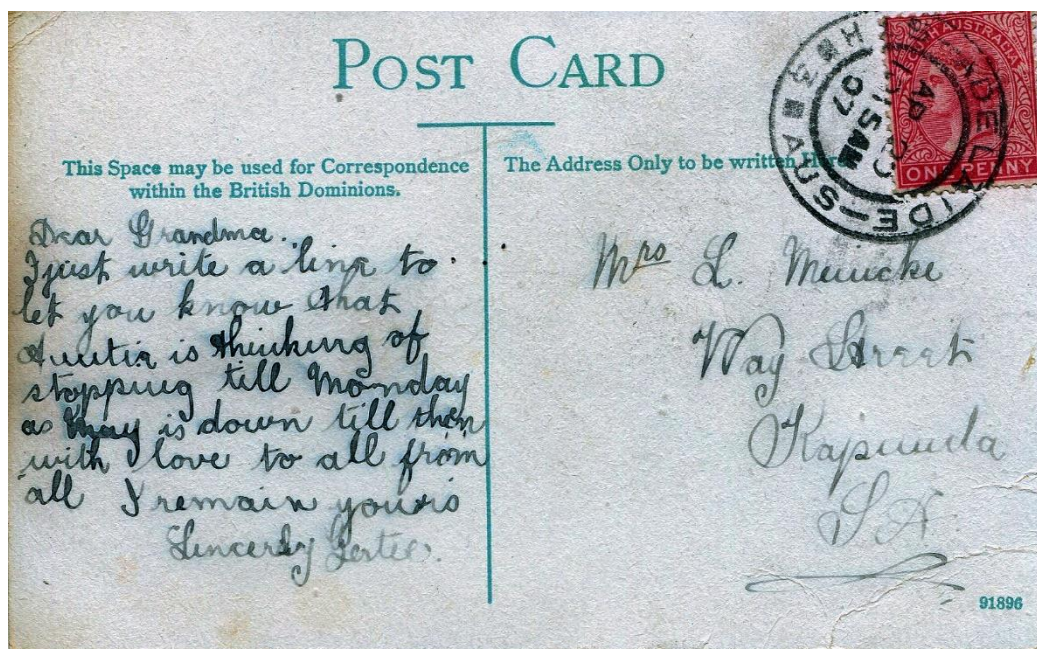 POST CARD
This Space may be used for Correspondence
within the British Dominions.
The Address Only to be written Here
SOUTH AUSTRALIA
ONE PENNY
ADELAIDE - S AUS
AP
15 AM
07
Dear Grandma.
I just write a line to
let you know that
Auntie is thinking of
stopping till Monday
as May is down till then
with love to all from
all I remain yours
Sincerly Gertie.
Mrs L.
Way Street
Kapunda
S A
91896